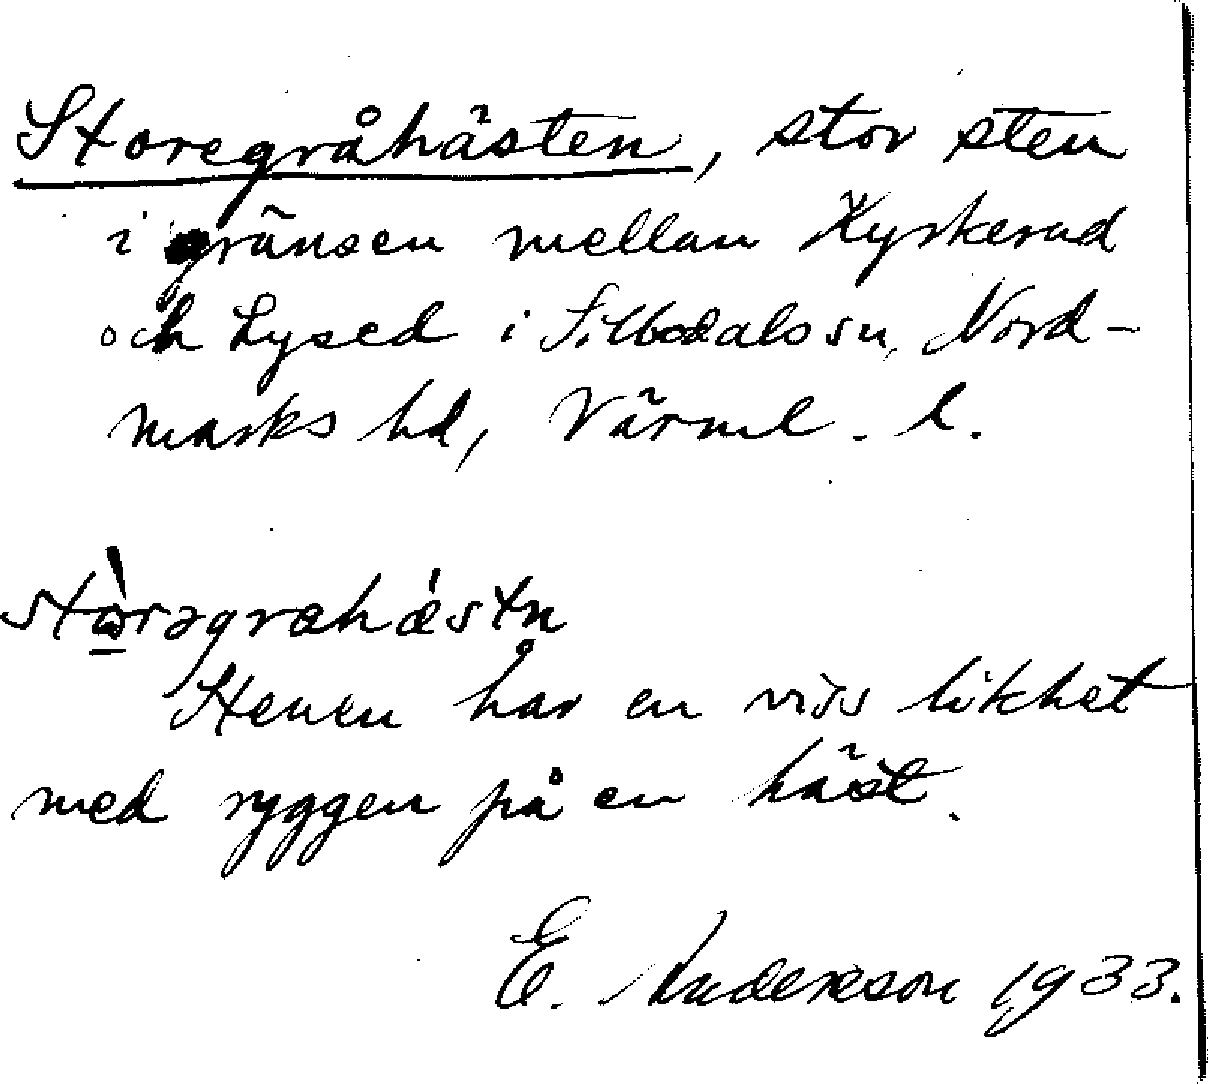 Storegråhästen, stor sten
i gränsen mellan Kyrkerud
och Lysed i Silbodals sn, Nord-
marks hd, Värml. l.
Stenen har en viss likhet
med ryggen på en häst.
E. Andersson 1933.